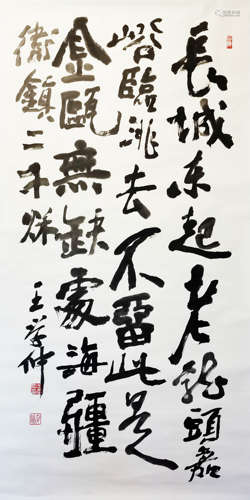 長城東起老龍頭嘉
峪臨洮去不留此是
金甌無缺處海疆
衛鎮二千秋
王学仲